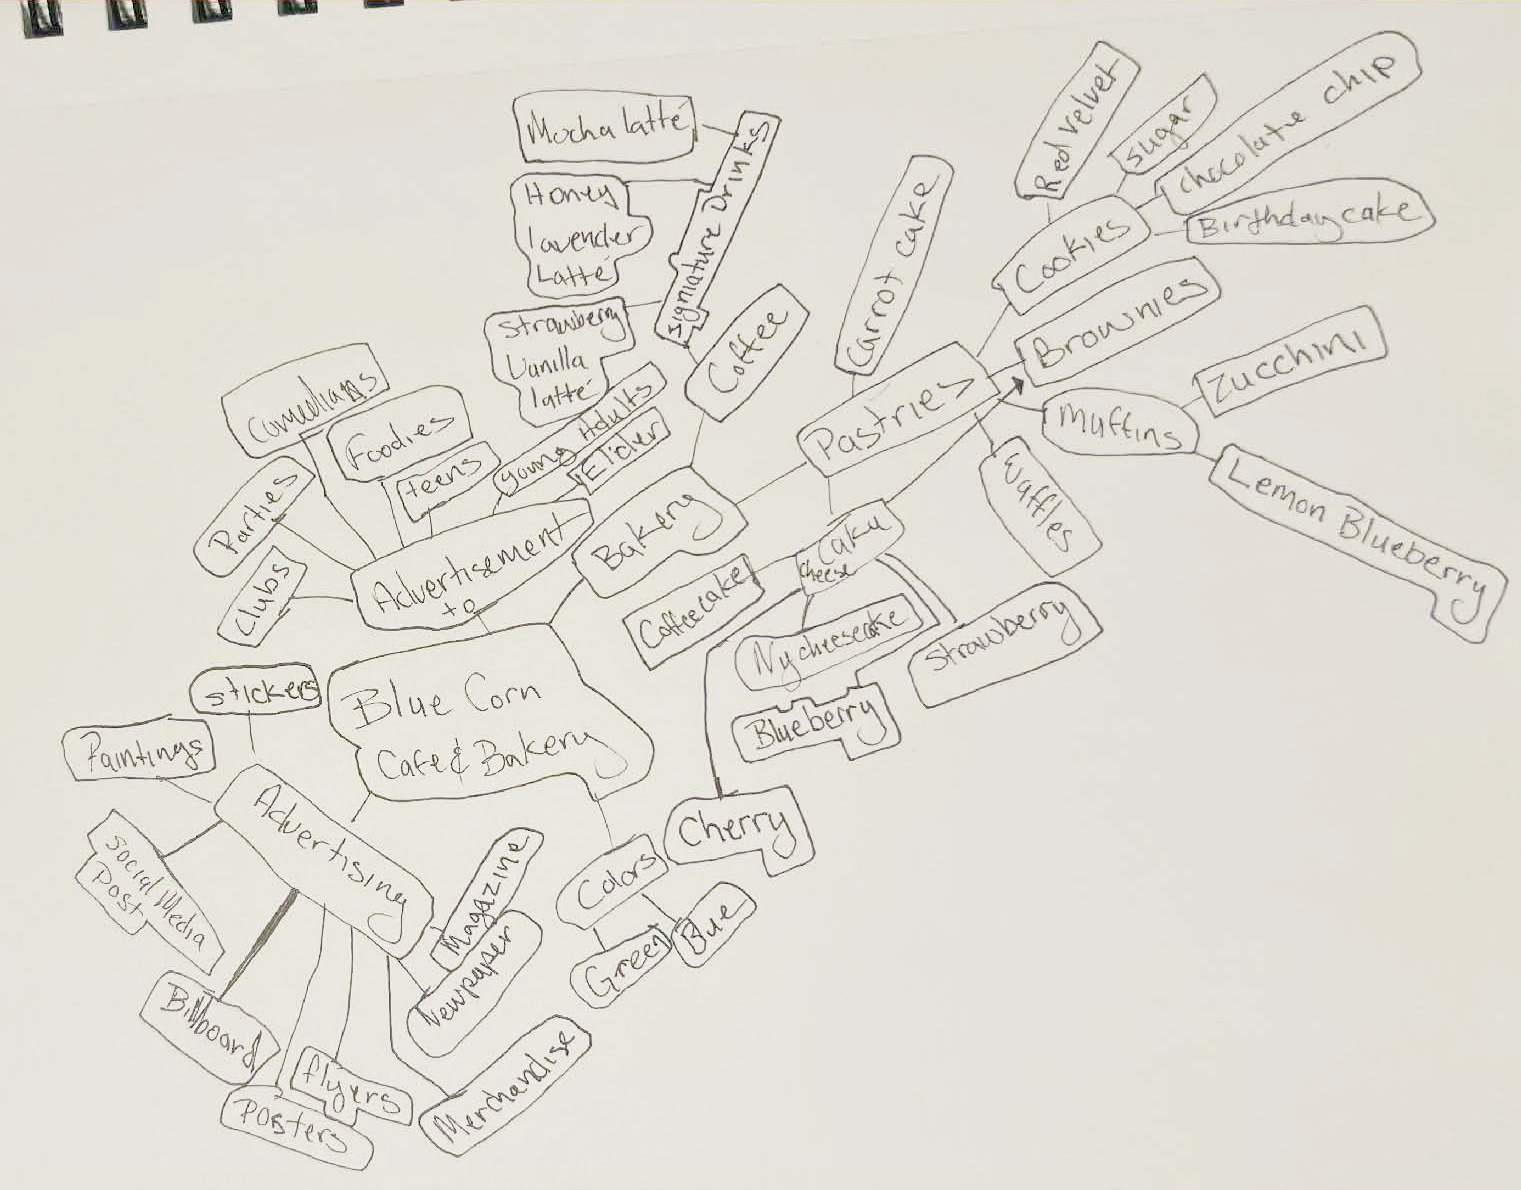 Mocha latté
Honey
lavender
Latté
Strawberry
Vanilla
latté
Signiature Drinks
Coffee
Carrot cake
Red velvet
sugar
chocolate chip
Birthday cake
Cookies
Brownies
Zucchini
Muffins
Lemon Blueberry
Pastries
Waffles
Comedians
Foodies
teens
Young Adults
Elider
Parties
Clubs
Advertisement
to
Bakery
Cake
cheese
Coffeecake
Ny cheesecake
Strawberry
Blueberry
Cherry
Blue Corn
Cafe & Bakery
stickers
Paintings
Advertising
Social Media
Post
Billboard
Posters
flyers
Magazine
Newpaper
Merchandise
Colors
Green
Blue